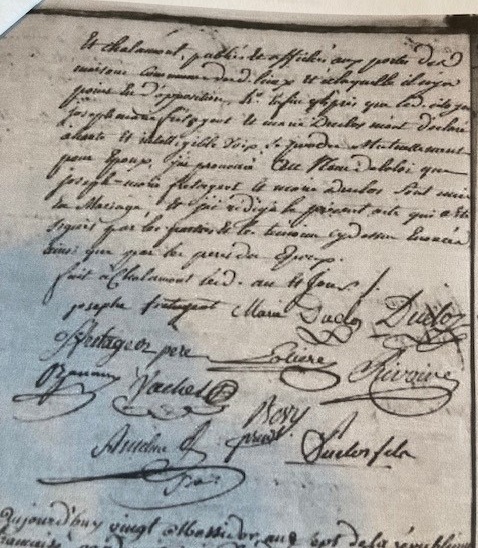 Et Chalamont, publié et affiché aux portes des d
maisons communes desd. lieux et a laquelle il n'y a
point eu d'opposition, Et enfin après que led. citoyen
joseph marie fretagent Et marie Duclos m'ont déclaré
a haute et intelligible voix Se prendre Mutuellement
pour Epoux, j'ai prononcé au Nom de la loi que
joseph-marie fretagent Et marie duclos sont unis
en Mariage, Et j'ai rédigé le présent acte qui a été
signés par les parties et les témoins cydessus Enoncés
ainsi que par les peres des Epoux.
fait a Chalamont led. an Et jour /.
joseph fretagent Marie Duclos Duclos
fretageon pere Rivoire
Vachet
Bovy
présdt
Duclos fils
Aujourd'huy vingt Messidor, an sept de la république
française